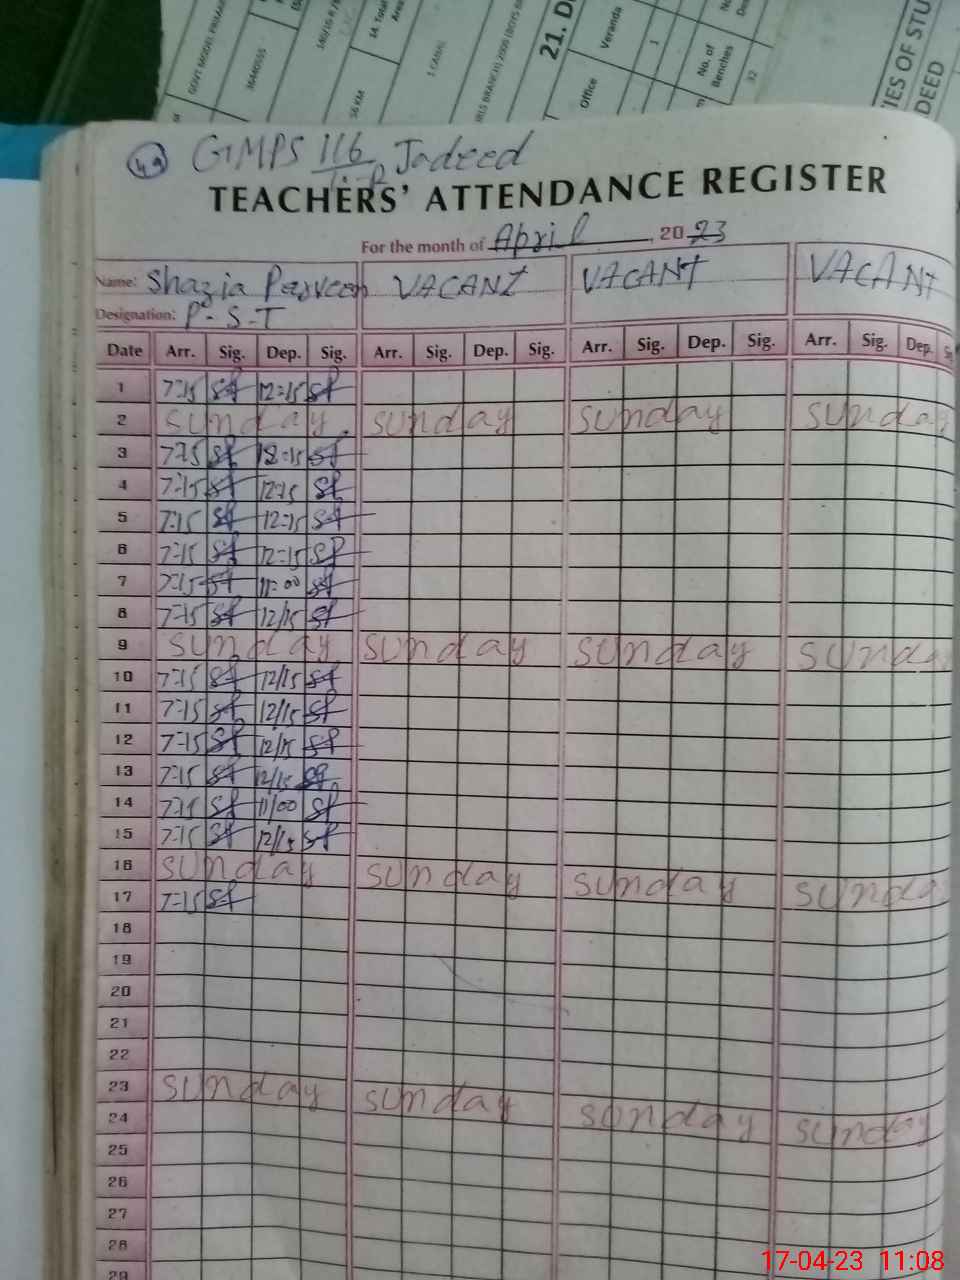 GOVT MODEL PRIMARY
36440555
56 KM
14. Total Area
1 KANAL
21. D
Office
Veranda
1
No. of Benches
32
IES OF STU
DEED
49 GMPS 116 Jadeed
TEACHERS' ATTENDANCE REGISTER
For the month of April, 2023
Name: Shazia Parveen VACANT VACANT VACANT
Designation: P-S-T
Date Arr. Sig. Dep. Sig. Arr. Sig. Dep. Sig. Arr. Sig. Dep. Sig. Arr. Sig. Dep.
1 7=15 12=15
2 sunday sunday sunday sunday
3 7=15 12=15
4 7=15 12=15
5 7=15 12=15
6 7=15 12=15
7 7=15 11=00
8 7=15 12/15
9 sunday sunday sunday sunda
10 7=15 12/15
11 7=15 12/15
12 7=15 12/15
13 7=15 12/15
14 7=15 11/00
15 7=15 12/15
16 sunday sunday sunday sunda
17 7=15
18
19
20
21
22
23 sunday sunday sunday sunday
24
25
26
27
28
29
17-04-23 11:08